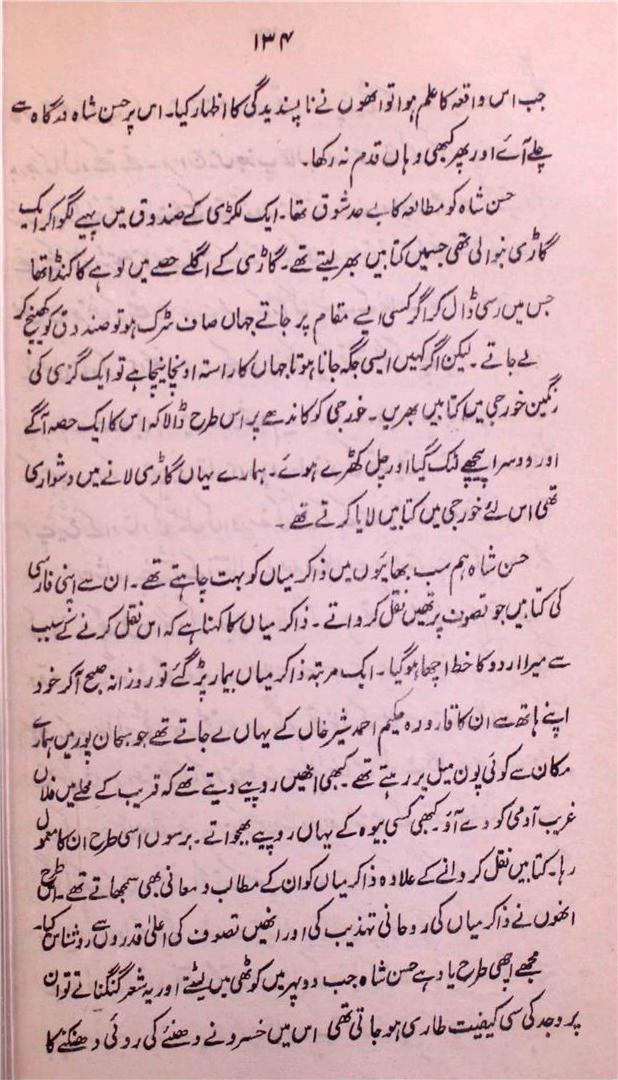 ۱۳۴
جب اس واقعہ کا علم ہوا تو انھوں نے ناپسندیدگی کا اظہار کیا۔ اس پر حسن شاہ درگاہ سے
چلے آئے اور پھر کبھی وہاں قدم نہ رکھا۔
حسن شاہ کو مطالعہ کا بے حد شوق تھا۔ ایک لکڑی کے صندوق میں پہیے لگوا کر ایک
گاڑی بنوالی تھی جسمیں کتابیں بھر لیتے تھے۔ گاڑی کے اگلے حصے میں لوہے کا کنڈا تھا
جس میں رسی ڈال کر اگر کسی ایسے مقام پر جاتے جہاں صاف سڑک ہو تو صندوق کو کھینچ کر
لے جاتے۔ لیکن اگر کہیں ایسی جگہ جانا ہوتا جہاں کا راستہ اونچا نیچا ہے تو ایک گزی کی
رنگین خورجی میں کتابیں بھریں۔ خورجی کو کاندھے پر اس طرح ڈالا کہ اس کا ایک حصہ آگے
اور دوسرا پیچھے لٹک گیا اور چل کھڑے ہوئے۔ ہمارے یہاں گاڑی لانے میں دشواری
تھی اس لئے خورجی میں کتابیں لایا کرتے تھے۔
حسن شاہ ہم سب بھائیوں میں ذاکر میاں کو بہت چاہتے تھے۔ ان سے اپنی فارسی
کی کتابیں جو تصوف پر تھیں نقل کرواتے۔ ذاکر میاں کا کہنا ہے کہ اس نقل کرنے کے سبب
سے میرا اردو کا خط اچھا ہوگیا۔ ایک مرتبہ ذاکر میاں بیمار پڑ گئے تو روزانہ صبح آکر خود
اپنے ہاتھ سے ان کا قارورہ حکیم احمد شیر خاں کے یہاں لے جاتے تھے جو سبحان پور میں ہمارے
مکان سے کوئی پون میل پر رہتے تھے۔ کبھی انھیں روپیے دیتے تھے کہ قریب کے محلے میں فلاں
غریب آدمی کو دے آؤ۔ کبھی کسی بیوہ کے یہاں روپیے بھجواتے۔ برسوں اسی طرح ان کا معمول
رہا۔ کتابیں نقل کروانے کے علاوہ ذاکر میاں کو ان کے مطالب و معانی بھی سمجھاتے تھے۔ اس طرح
انھوں نے ذاکر میاں کی روحانی تہذیب کی اور انھیں تصوف کی اعلیٰ قدروں سے روشناس کیا۔
مجھے اچھی طرح یاد ہے حسن شاہ جب دوپہر میں کوٹھی میں لیٹتے اور یہ شعر گنگناتے تو ان
پر وجد کی سی کیفیت طاری ہو جاتی تھی اس میں خسرو نے دھنئے کی روئی دھنکنے کا